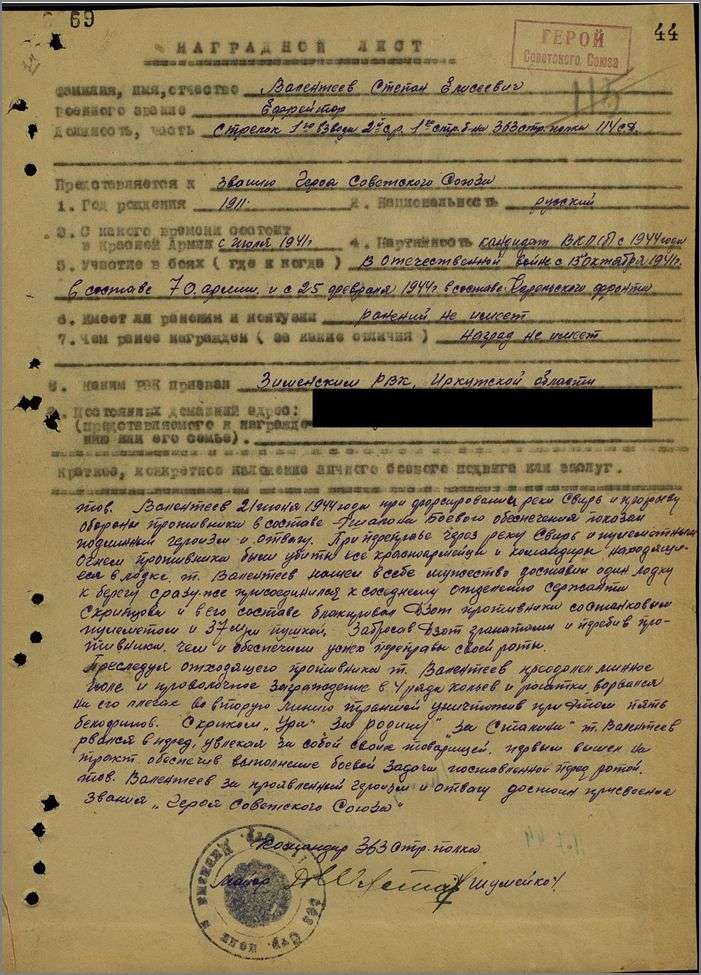 69
44
НАГРАДНОЙ ЛИСТ
ГЕРОЙ
Советского Союза
115
Фамилия, имя, отчество Валентеев Степан Елисеевич
Военное звание Ефрейтор
Должность, часть Стрелок 1го взвода 2й с.р. 1го стр. б-на 363 стр. полка 114 с.д.
Представляется к званию Героя Советского Союза
1. Год рождения 1911 2. Национальность русский
3. С какого времени состоит
в Красной Армии с июля 1941г 4. Партийность кандидат ВКП(б) с 1944 года
5. Участие в боях ( где и когда ) В отечественной войне с 15 октября 1941г.
в составе 7 О. армии и с 25 февраля 1944г в составе Карельского фронта
6. Имеет ли ранения и контузии ранений не имеет
7. Чем ранее награжден ( за какие отличия ) наград не имеет
8. Каким РВК призван Зименским РВК, Иркутской области
9. Постоянный домашний адрес:
(представляемого к награжде-
нию или его семье).
Краткое, конкретное изложение личного боевого подвига или заслуг.
тов. Валентеев 21 июня 1944 года при форсировании реки Свирь и прорыву
обороны противника в составе Эшалона Боевого обеспечения показал
подлинный героизм и отвагу. При переправе через реку Свирь и пулеметным
Огнем противника были убиты все красноармейцы и командиры находящи-
еся в лодке, т. Валентеев нашел в себе мужество доставил один лодку
к берегу сразу же присоединился к соседнему отделению сержанта
Скрипцова и в его составе блокировал Дзот противника со станковым
пулеметом и 37 м/м пушкой, Забросав Дзот гранатами и перебив про-
тивника. чем и обеспечили успех переправы своей роты.
Преследуя отходящего противника т. Валентеев преодолел минное
поле и проволочное заграждение в 4 ряда кольев и рогатки, ворвался
на его плечах во вторую линию траншей уничтожив при этом пять
белофинов. С криком „Ура" За родину" „За Сталина" т. Валентеев
рвался вперед, увлекая за собой своих товарищей, первым вышел на
тракт обеспечив выполнение боевой задачи поставленной перед ротой.
тов. Валентеев за проявленный героизм и отвагу достоин присвоения
Звания „Героя Советского Союза"
Командир 363 Стр. полка
Майор /Шумейко/